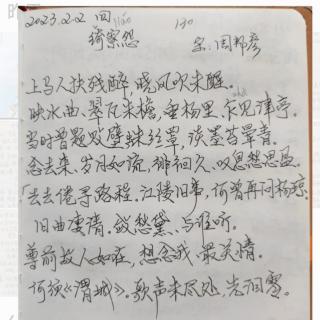 2023.2.2 周
130
绮寮怨
liáo
宋:周邦彦
上马人扶残醉,晓风吹未醒。
映水曲、翠瓦朱檐,垂杨里、乍见津亭。
当时曾题败壁,蛛丝罩,淡墨苔晕青。
念去来、岁月如流,徘徊久、叹息愁思盈。
「去去倦寻路程。江陵旧事,何曾再问杨琼。
旧曲凄清。敛愁黛、与谁听。
尊前故人如在,想念我、最关情。
何须《渭城》。歌声未尽处,先泪零。